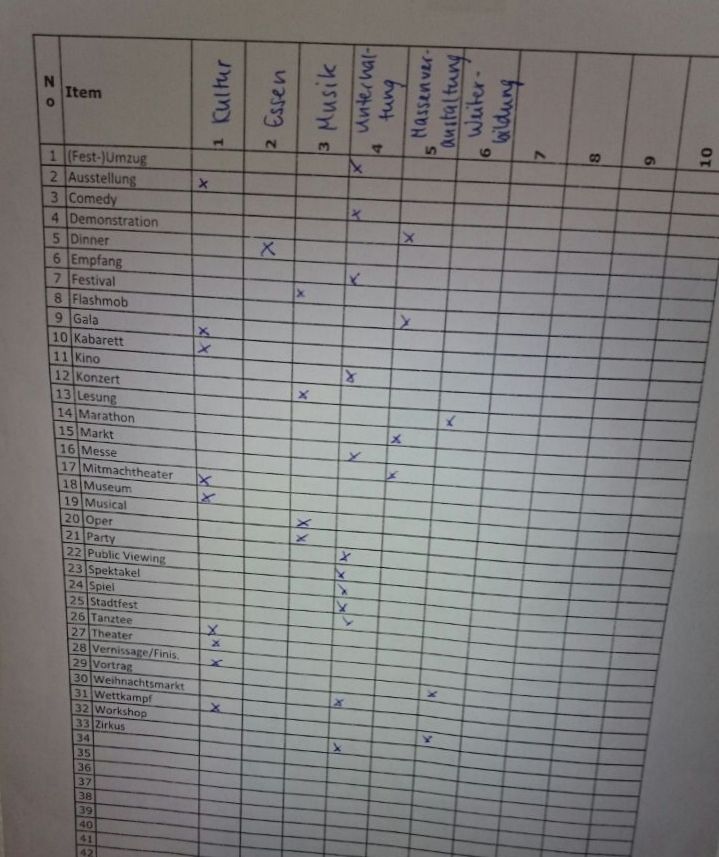 No Item 1 Kultur 2 Essen 3 Musik 4 Unterhal-
tung 5 Massenver-
anstaltung 6 Weiter-
bildung 7 8 9 10
1 (Fest-)Umzug x
2 Ausstellung x
3 Comedy x
4 Demonstration x
5 Dinner x
6 Empfang x
7 Festival x
8 Flashmob x
9 Gala x
10 Kabarett x
11 Kino x
12 Konzert x
13 Lesung x
14 Marathon x
15 Markt x
16 Messe x
17 Mitmachtheater x
18 Museum x
19 Musical x
20 Oper x
21 Party x
22 Public Viewing x
23 Spektakel x
24 Spiel x
25 Stadtfest x
26 Tanztee x
27 Theater x
28 Vernissage/Finis. x
29 Vortrag x
30 Weihnachtsmarkt x
31 Wettkampf x
32 Workshop x
33 Zirkus x
34
35
36
37
38
39
40
41
42